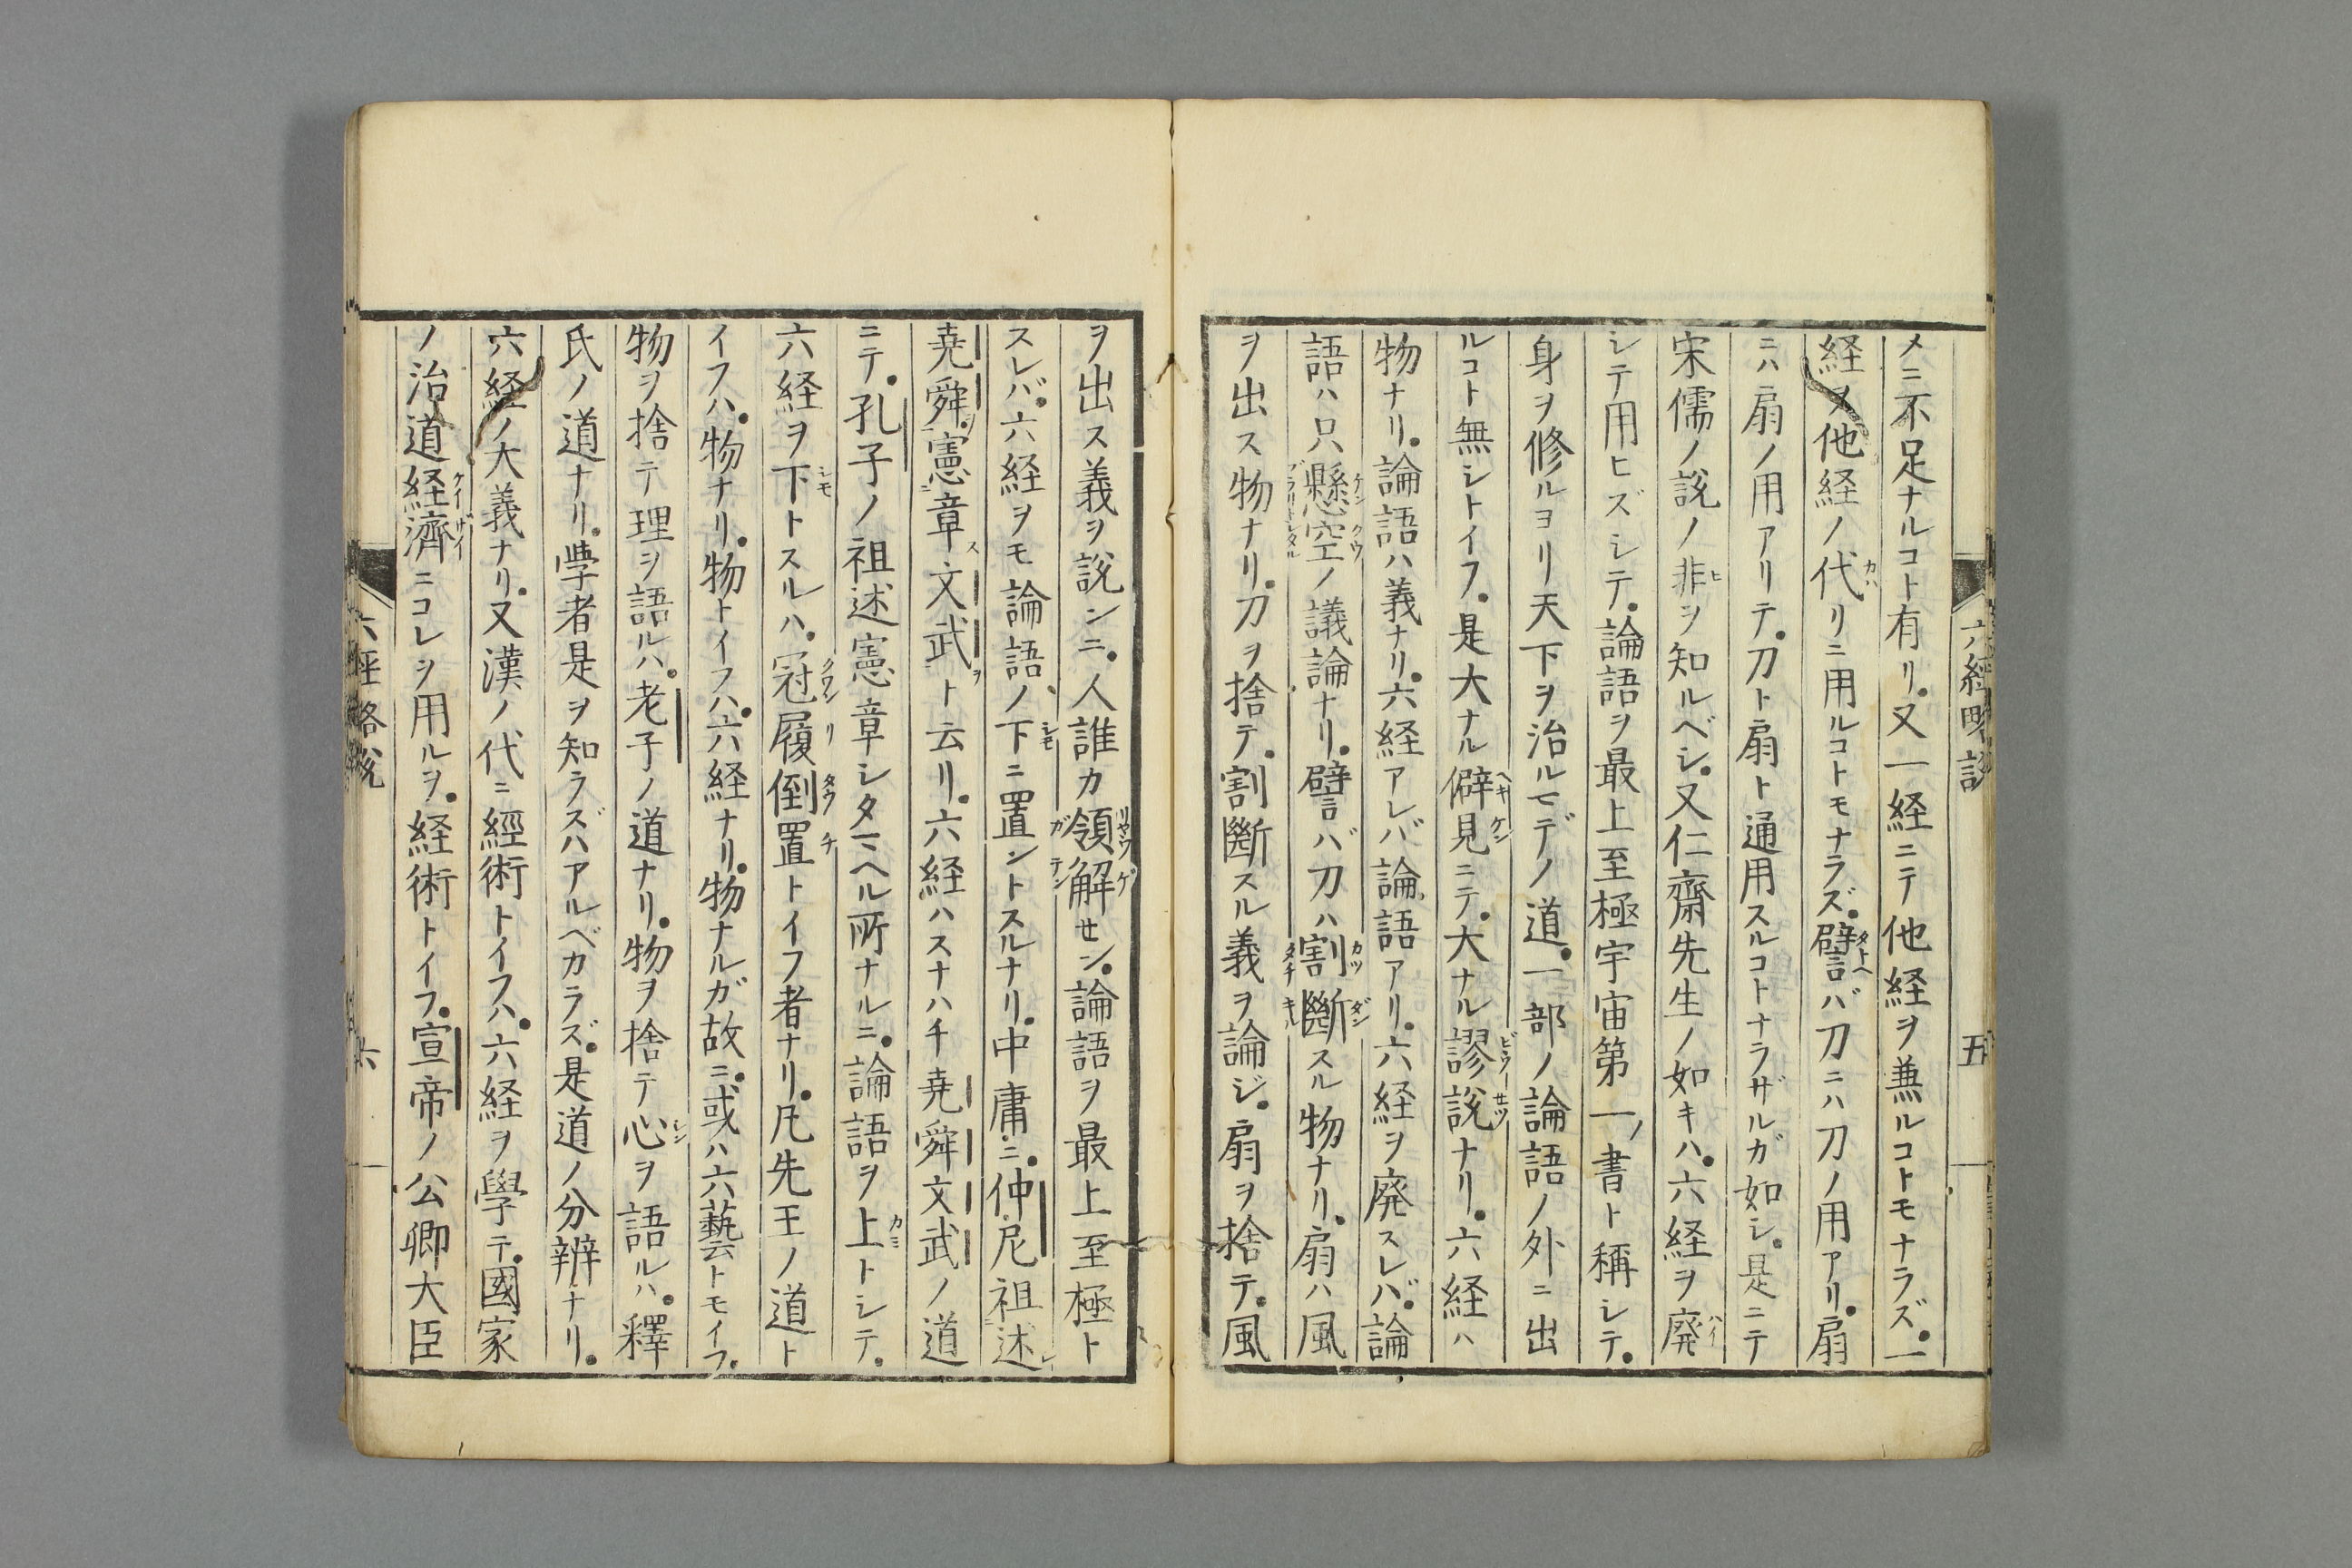 六經略說 五
メニ不足ナルコト有リ。又一経ニテ他経ヲ兼ルコトモナラズ。一
経ヲ他経ノ代リニ用ルコトモナラズ。譬バ刀ニハ刀ノ用アリ。扇
ニハ扇ノ用アリテ。刀ト扇ト通用スルコトナラザルガ如シ。是ニテ
宋儒ノ説ノ非ヲ知ルベシ。又仁齋先生ノ如キハ。六経ヲ廃
シテ用ヒズシテ。論語ヲ最上至極宇宙第一ノ書ト稱シテ。
身ヲ修ルヨリ天下ヲ治ルマデノ道。一部ノ論語ノ外ニ出
ルコト無シトイフ。是大ナル僻見ニテ。大ナル謬説ナリ。六経ハ
物ナリ。論語ハ義ナリ。六経アレバ論語アリ。六経ヲ廃スレバ。論
語ハ只懸空ノ議論ナリ。譬バ刀ハ割斷スル物ナリ。扇ハ風
ヲ出ス物ナリ。刀ヲ捨テ。割斷スル義ヲ論ジ。扇ヲ捨テ。風
ヲ出ス義ヲ説ンニ。人誰カ領解セン。論語ヲ最上至極ト
スレバ。六経ヲモ論語ノ下ニ置ントスルナリ。中庸ニ。仲尼祖述シ
堯舜ヲ。憲章ス文武ヲト云リ。六経ハスナハチ堯舜文武ノ道
ニテ。孔子ノ祖述憲章シタマヘル所ナルニ。論語ヲ上トシテ。
六経ヲ下トスルハ。冠履倒置トイフ者ナリ。凡先王ノ道ト
イフハ。物ナリ。物トイフハ。六経ナリ。物ナルガ故ニ。或ハ六藝トモイフ。
物ヲ捨テ理ヲ語ルハ。老子ノ道ナリ。物ヲ捨テ心ヲ語ルハ。釋
氏ノ道ナリ。學者是ヲ知ラズハアルベカラズ。是道ノ分辨ナリ。
六経ノ大義ナリ。又漢ノ代ニ經術トイフハ。六経ヲ學テ。國家
ノ治道経濟ニコレヲ用ルヲ。経術トイフ。宣帝ノ公卿大臣
六經略說 六